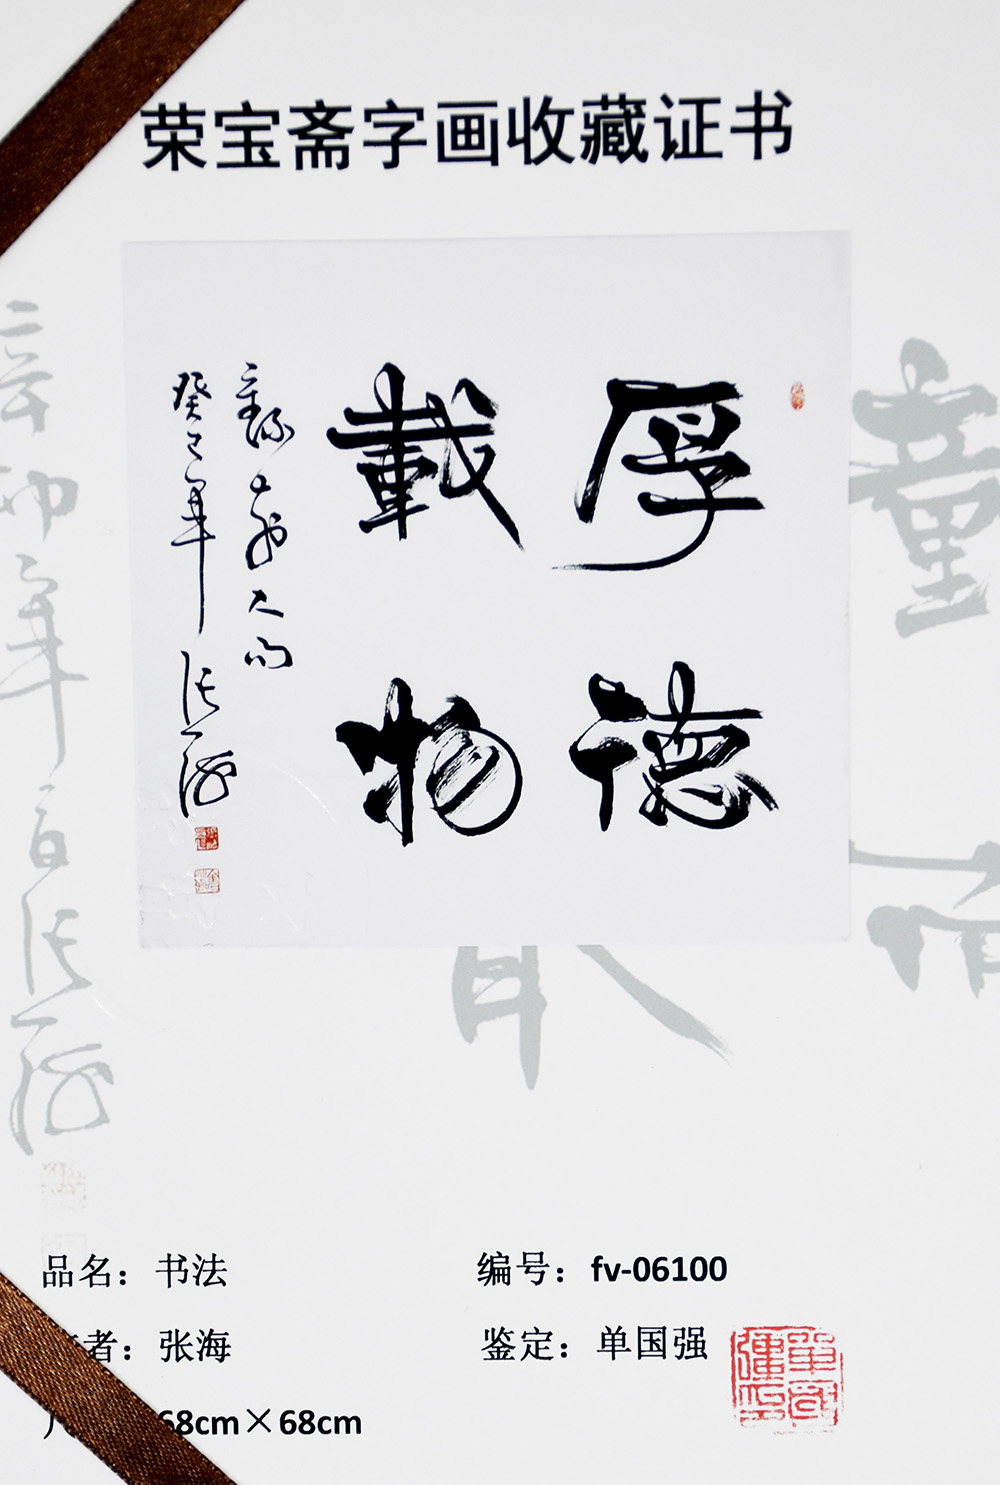 荣宝斋字画收藏证书
厚德
载物
癸巳年 张海
品名：书法
编号：fv-06100
者：张海
鉴定：单国强
68cm×68cm